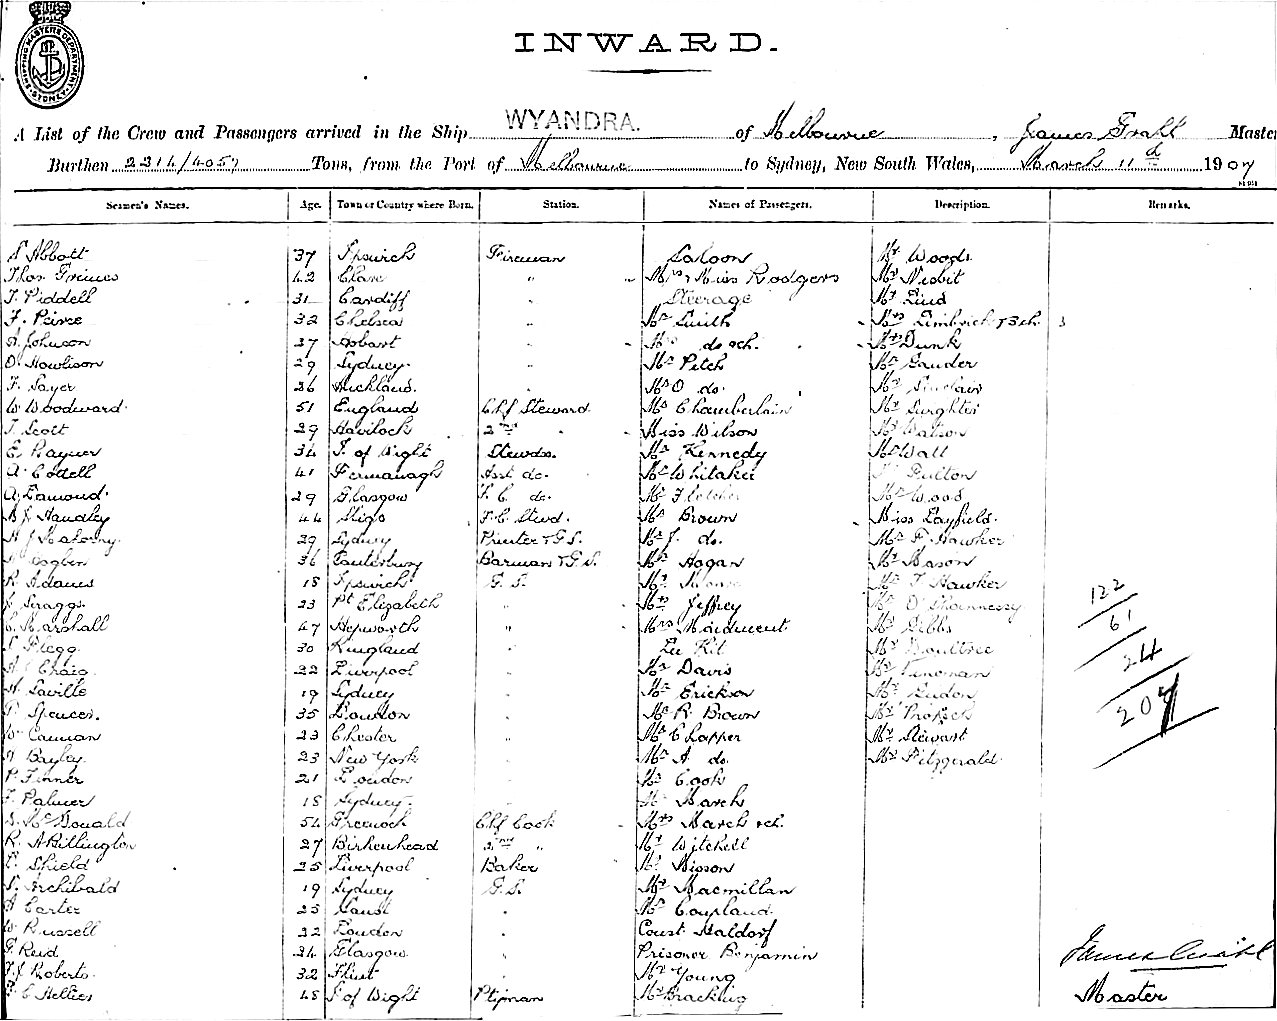 SHIPPING MASTER'S DEPARTMENT SYDNEY
INWARD.
A List of the Crew and Passengers arrived in the Ship WYANDRA. of Melbourne, James Master
Burthen 2314/4057 Tons, from the Port of Melbourne to Sydney, New South Wales, March 11 1907
Seamen's Names. Age. Town or Country where Born. Station. Names of Passengers. Description. Remarks.
Abbott 37 Ipswich Fireman Saloon Mr Woods
Thos Grimes 42 Clare " Mrs & Miss Rodgers Mr Nisbit
T. Piddell 31 Cardiff " Steerage Mr Lind
F. Peirce 32 Chelsea " Mr Smith Mrs Limbrick & 3 ch. 3
Johnson 27 Hobart " Mrs do & ch. Dunk
D. Howlison 29 Sydney " Mr Pitch Mr Gauder
F. Sayer 26 Auckland. " Mr O do. Mr Sinclair
W. Woodward 51 England Chf Steward. Mr Chamberlain Mr
T. Scott 29 Havilock 2nd " Miss Wilson Mr Watson
E. Rayner 34 I. of Wight Stewdss. Mr Kennedy Mr Watt
A. Codell 41 Fermanagh Asst do. Mr Whitaker Fulton
A. Edmond 29 Glasgow F. C. do. Mr Fletcher Mr Wood
Handley 44 Sligo F. C. Stwd. Mr Brown Miss Layfield.
29 Sydney Printer & G.S. Mr J. do. Mr F Hawker
36 Canterbury Barman & G.S. Mr Hagan Mr Mason
R. Adams 18 Ipswich G.S. Mr Mr T Hawker
Scraggs. 23 Pt Elizabeth " Mr Jeffrey Mr O'Shannessy 122
Marshall 47 Hepworth " Mrs Maidment Mr Gibbs 61
Flegg 30 England " Lee Kit Mr Boultree 24
Craig 22 Liverpool " Mr Davis Mr
Saville 19 Sydney " Mr Erickson Mr 207
Spencer. 35 London " Mr R. Brown Mr
Cannan 23 Chester " Mr Clapper Mr Stewart
Bayley 23 New York " Mr A do. Mr Fitzgerald
P. Finner 21 London Mr Cook
F. Palmer 18 Sydney Mr March
McDonald 54 Greenock Chf Cook Mrs March & ch.
R. A Billington 27 Birkenhead 2nd " Mr Mitchell
Shield 25 Liverpool Baker Mr Nisson
Archibald 19 Sydney G.S. Mr Macmillan
Carter 23 " Mr Coupland.
W. Russell 32 London " Const Waldorf
Reid 24 Glasgow " Prisoner Benjamin James
Roberts 32 Flint Mr Young
Hellier 48 I of Wight Ptrman Mr Bracking Master